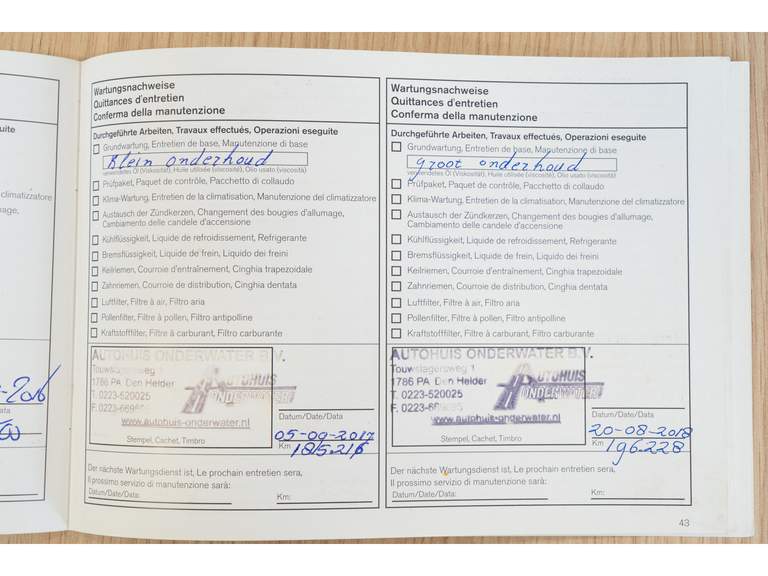 uite
climatizzatore
nage,
-2016
ata
Wartungsnachweise
Quittances d'entretien
Conferma della manutenzione
Durchgeführte Arbeiten, Travaux effectués, Operazioni eseguite
Grundwartung, Entretien de base, Manutenzione di base
Klein onderhoud
verwendetes Öl (Viskosität), Huile utilisée (viscosité), Olio usato (viscosità)
Prüfpaket, Paquet de contrôle, Pacchetto di collaudo
Klima-Wartung, Entretien de la climatisation, Manutenzione del climatizzatore
Austausch der Zündkerzen, Changement des bougies d'allumage,
Cambiamento delle candele d'accensione
Kühlflüssigkeit, Liquide de refroidissement, Refrigerante
Bremsflüssigkeit, Liquide de frein, Liquido dei freini
Keilriemen, Courroie d'entraînement, Cinghia trapezoidale
Zahnriemen, Courroie de distribution, Cinghia dentata
Luftfilter, Filtre à air, Filtro aria
Pollenfilter, Filtre à pollen, Filtro antipolline
Kraftstofffilter, Filtre à carburant, Filtro carburante
AUTOHUIS ONDERWATER B.V.
Touwslagersweg 1
1786 PA Den Helder
T. 0223-520025
F. 0223-669
AUTOHUIS
ONDERWATER
www.autohuis-onderwater.nl
Stempel, Cachet, Timbro
Datum/Date/Data
05-09-2017
Km 185.216
Der nächste Wartungsdienst ist, Le prochain entretien sera,
Il prossimo servizio di manutenzione sarà:
Datum/Date/Data: Km:
Wartungsnachweise
Quittances d'entretien
Conferma della manutenzione
Durchgeführte Arbeiten, Travaux effectués, Operazioni eseguite
Grundwartung, Entretien de base, Manutenzione di base
groot onderhoud
verwendetes Öl (Viskosität), Huile utilisée (viscosité), Olio usato (viscosità)
Prüfpaket, Paquet de contrôle, Pacchetto di collaudo
Klima-Wartung, Entretien de la climatisation, Manutenzione del climatizzatore
Austausch der Zündkerzen, Changement des bougies d'allumage,
Cambiamento delle candele d'accensione
Kühlflüssigkeit, Liquide de refroidissement, Refrigerante
Bremsflüssigkeit, Liquide de frein, Liquido dei freini
Keilriemen, Courroie d'entraînement, Cinghia trapezoidale
Zahnriemen, Courroie de distribution, Cinghia dentata
Luftfilter, Filtre à air, Filtro aria
Pollenfilter, Filtre à pollen, Filtro antipolline
Kraftstofffilter, Filtre à carburant, Filtro carburante
AUTOHUIS ONDERWATER B.V.
Touwslagersweg 1
1786 PA Den Helder
T. 0223-520025
F. 0223-6
AUTOHUIS
ONDERWATER
www.autohuis-onderwater.nl
Stempel, Cachet, Timbro
Datum/Date/Data
20-08-2018
Km 196.228
Der nächste Wartungsdienst ist, Le prochain entretien sera,
Il prossimo servizio di manutenzione sarà:
Datum/Date/Data: Km:
43